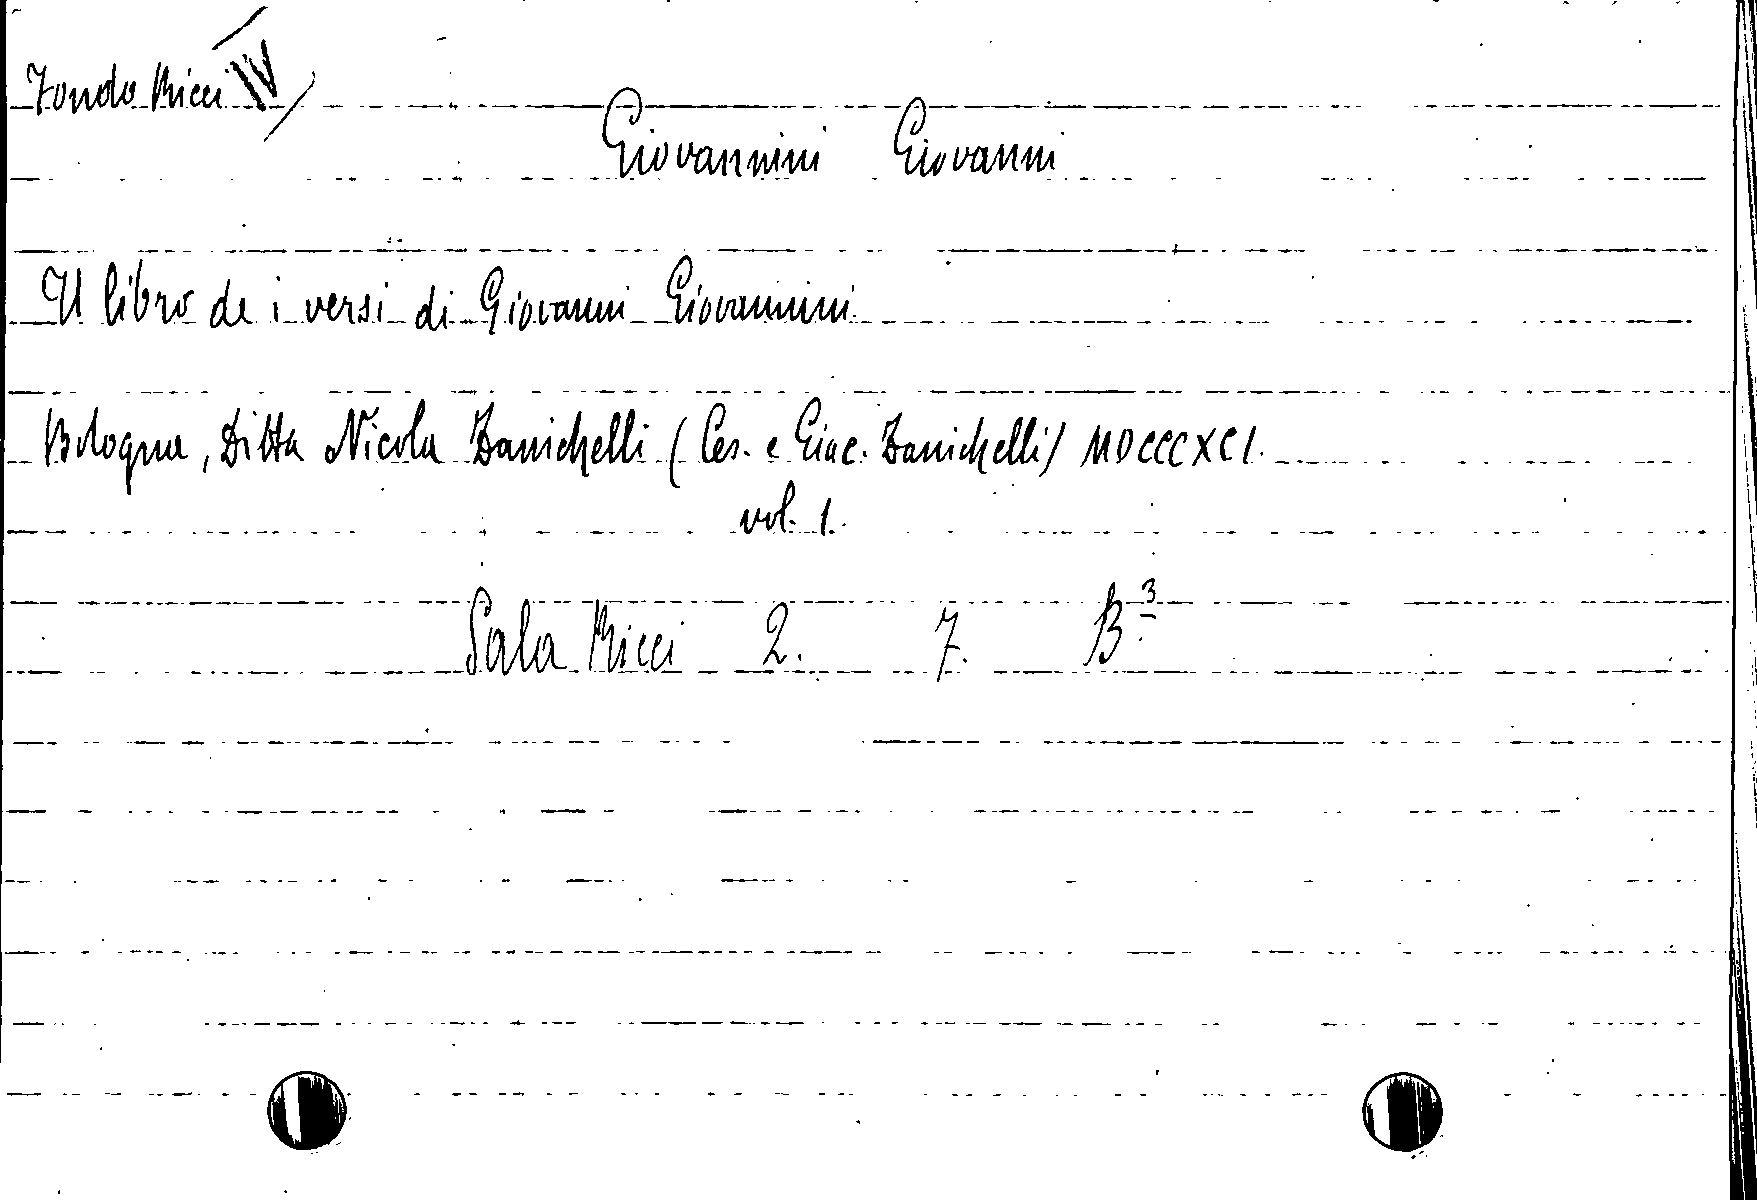 Fondo Ricci IV
Giovannini Giovanni
Il libro de i versi di Giovanni Giovannini
Bologna, Ditta Nicola Zanichelli (Ces. e Giac. Zanichelli) MDCCCXCI.
vol. 1.
Sala Ricci 2. 7. B³